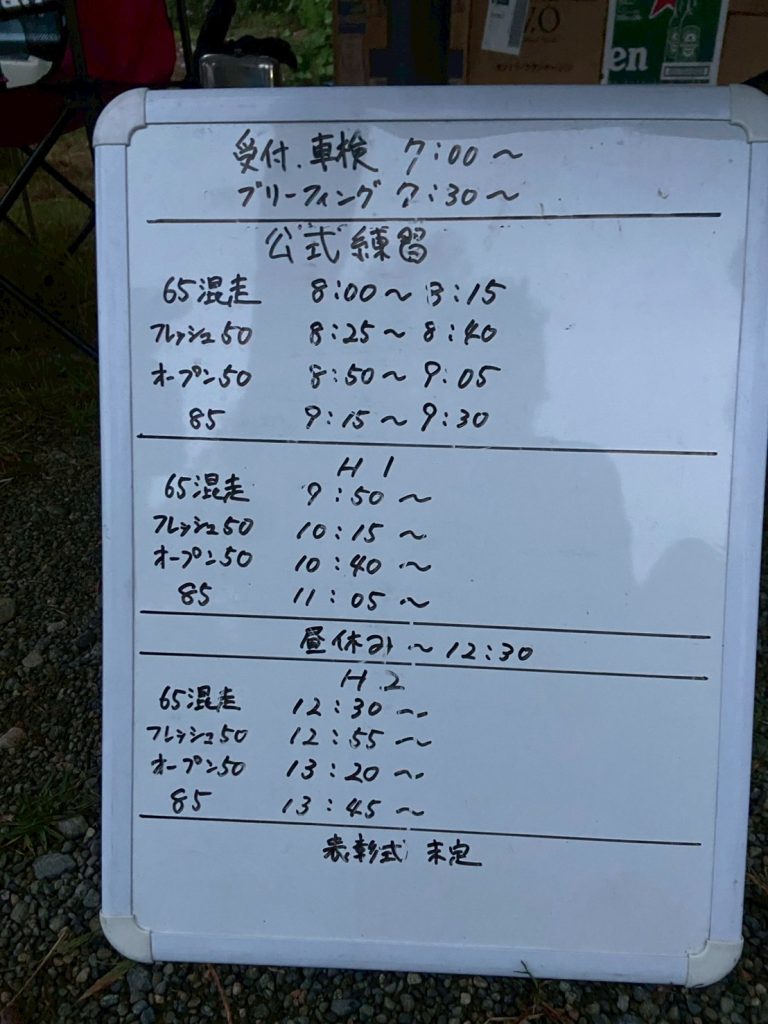 en
受付.車検 7:00～
ブリーフィング 7:30～
公式練習
65混走 8:00～8:15
フレッシュ50 8:25～8:40
オープン50 8:50～9:05
85 9:15～9:30
H 1
65混走 9:50～
フレッシュ50 10:15～
オープン50 10:40～
85 11:05～
昼休み～12:30
H.2
65混走 12:30～
フレッシュ50 12:55～
オープン50 13:20～
85 13:45～
表彰式 未定